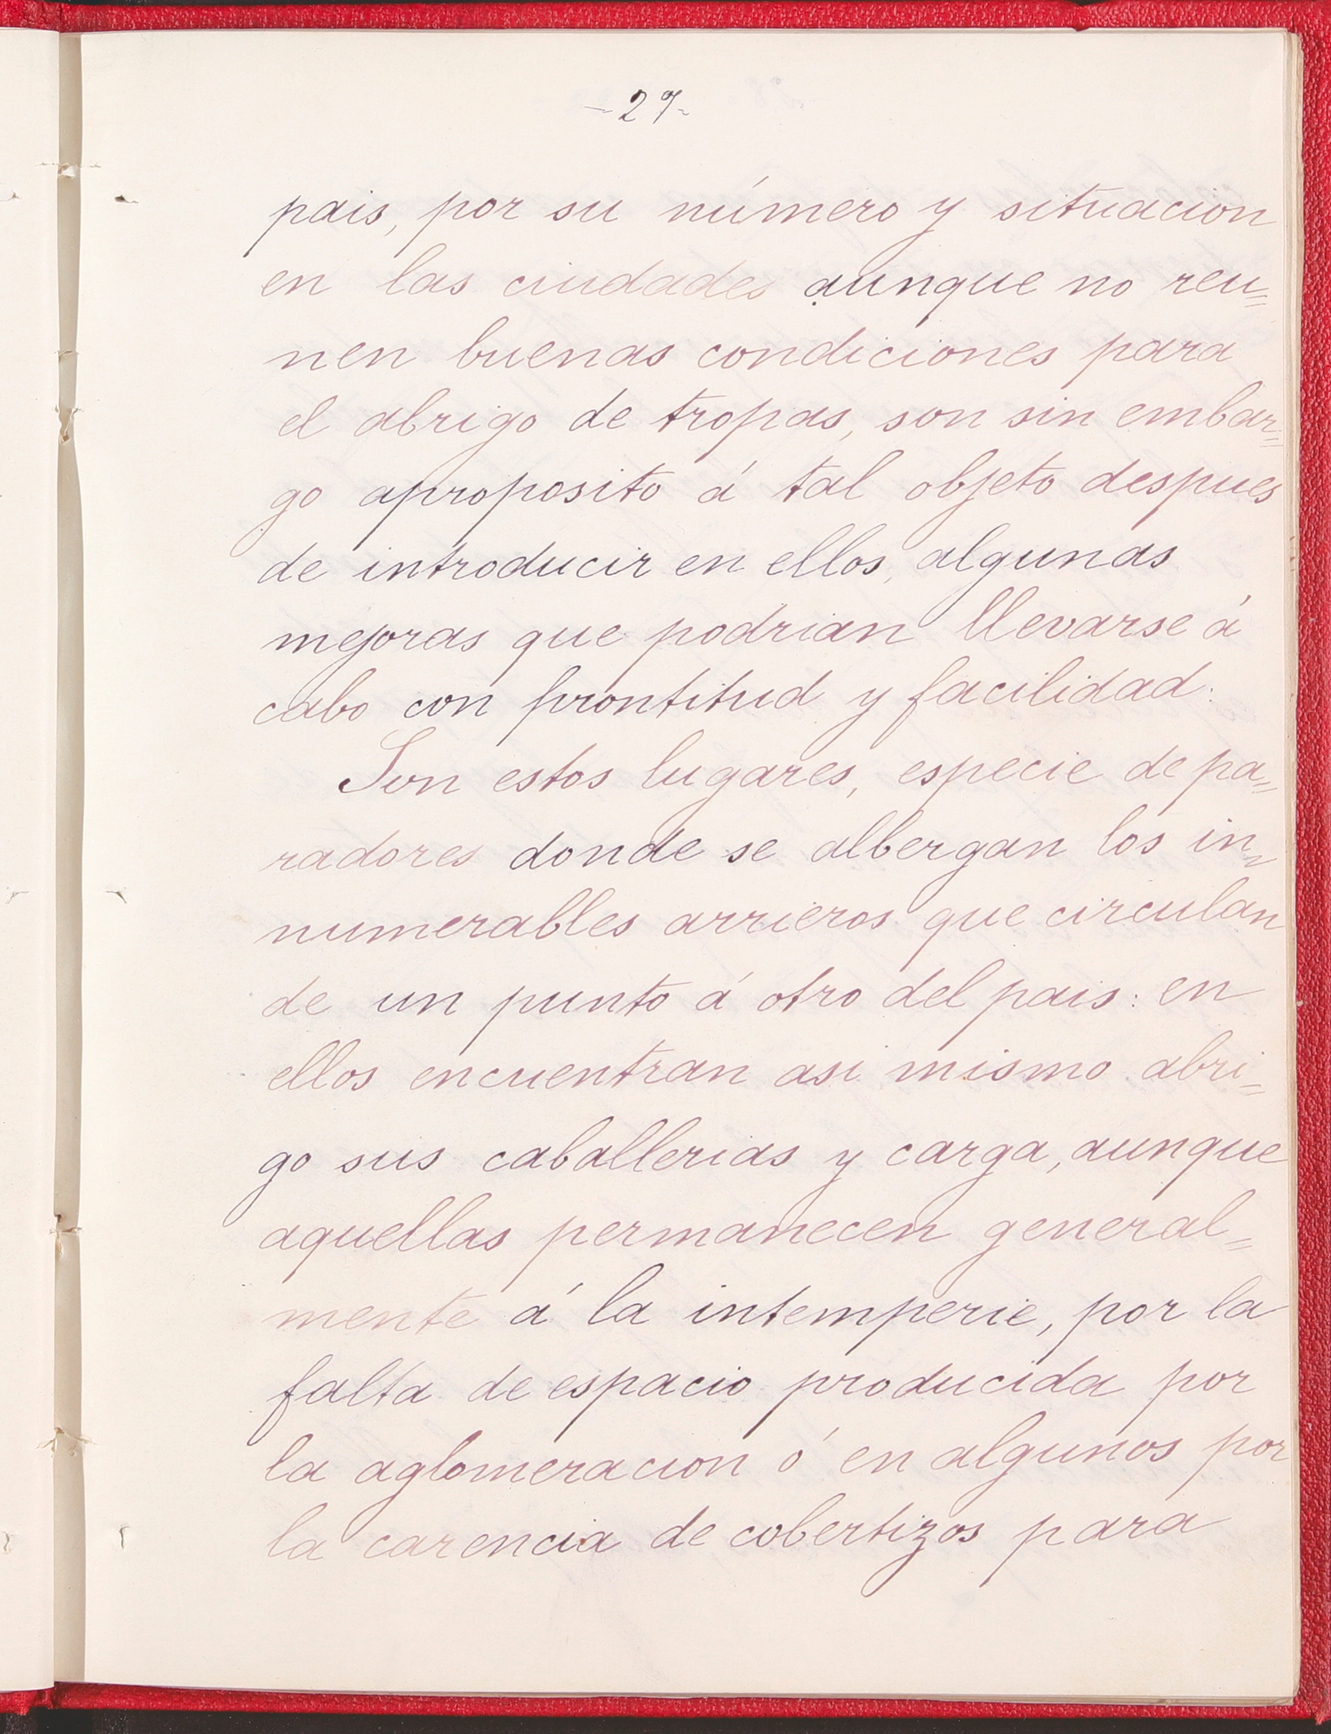 -27-
pais, por su número y situacion
en las ciudades aunque no reu=
nen buenas condiciones para
el abrigo de tropas, son sin embar=
go aproposito á tal objeto despues
de introducir en ellos, algunas
mejoras que podrian llevarse á
cabo con prontitud y facilidad.
Son estos lugares, especie de pa=
radores donde se albergan los in=
numerables arrieros que circulan
de un punto á otro del pais: en
ellos encuentran asi mismo abri=
go sus caballerias y carga, aunque
aquellas permanecen general=
mente á la intemperie, por la
falta de espacio producida por
la aglomeracion ó en algunos por
la carencia de cobertizos para